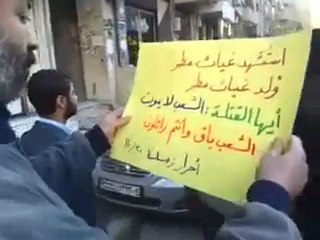 استشهد غياث مطر
وولد غياث مطر
أيها القتلة : الشعب لا يموت
الشعب باق وأنتم زائلون
أحرار زملكا ١١/٢٠